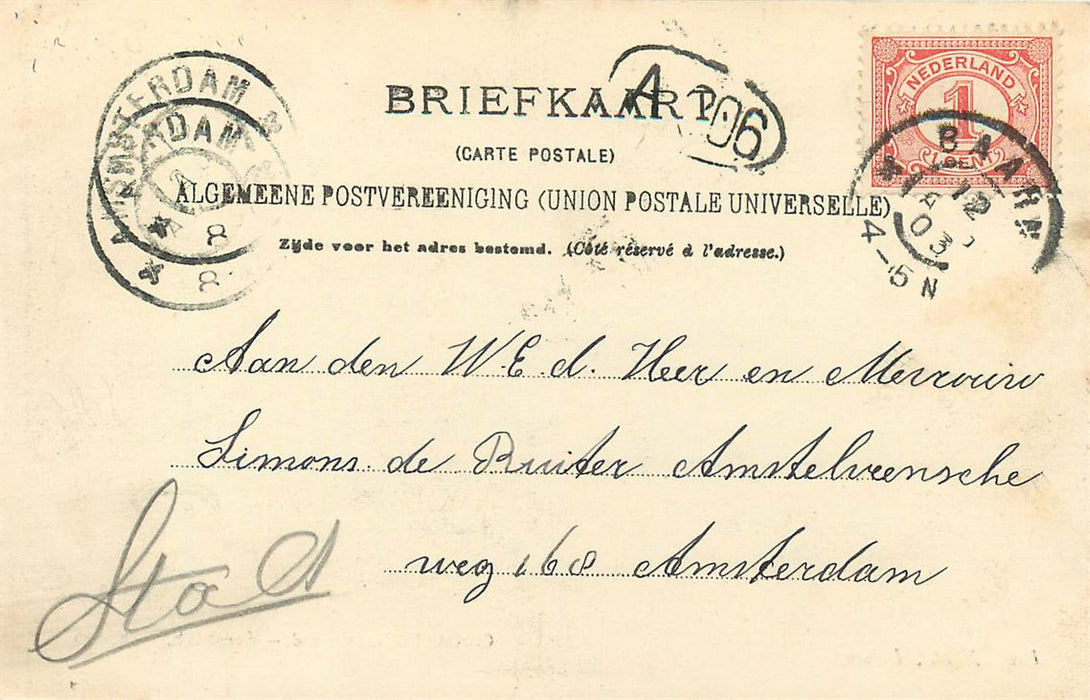 BRIEFKAART
(CARTE POSTALE)
ALGEMEENE POSTVEREENIGING (UNION POSTALE UNIVERSELLE)
Zijde voor het adres bestemd. (Côté réservé à l'adresse.)
NEDERLAND
1
CENT
BAARN
12
03
4-5 N
AMSTERDAM
8
8
A
Aan den W.E.d. Heer en Mevrouw
Simons de Ruiter Amstelveensche
weg 168 Amsterdam
Stad